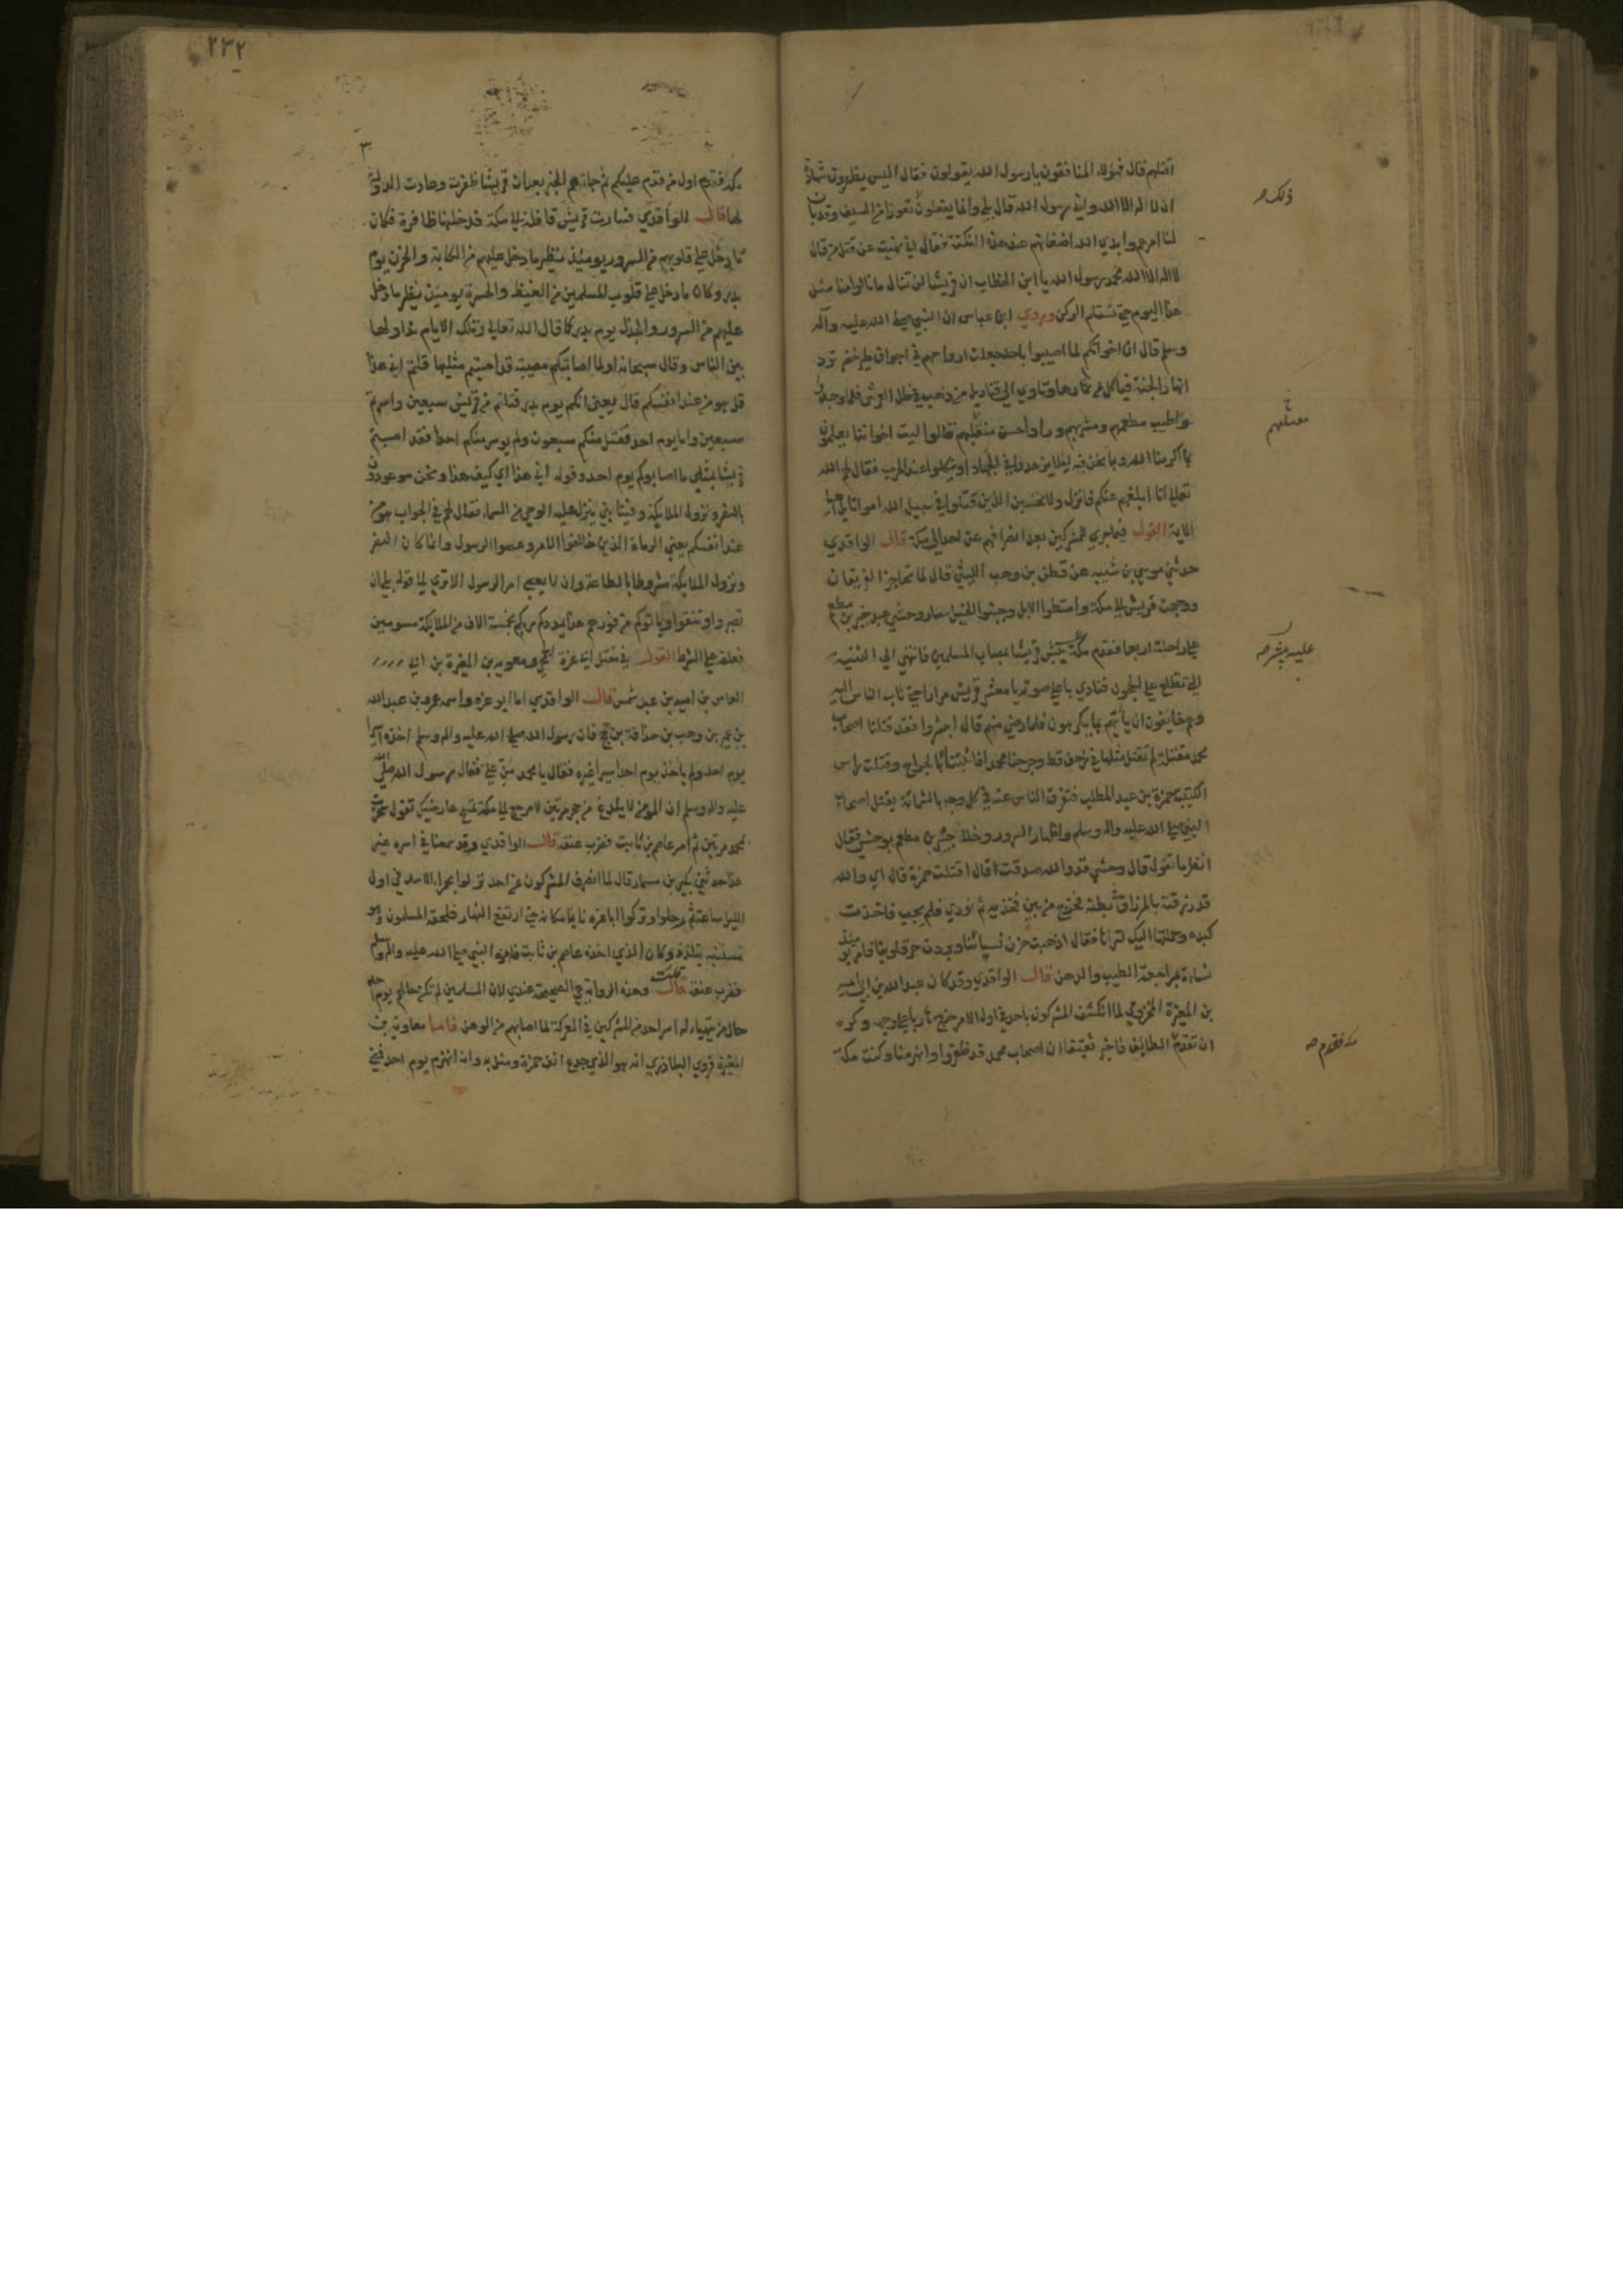 اقتلهم قال فهولاء المنافقون يا رسول الله يقولون فقال اليس يظهرون شهادة
ان لا اله الا الله واني رسول الله قال بلي وانما يفعلون تعوذا من السيف وقد بان
لنا امرهم وابدي الله اضغانهم عند هذه النكبة فقال اني نهيت عن قتل من قال
لا اله الا الله محمد رسول الله يا ابن الخطاب ان قريشا لن تنال ما نالوا منا مثل
هذا اليوم حتي نستلم الركن وروي ابن عباس ان النبي صلي الله عليه واله
وسلم قال ان اخوانكم لما اصيبوا باحد جعلت ارواحهم في اجواف طير خضر ترد
انهار الجنة فتاكل من ثمارها وتاوي الي قناديل من ذهب في ظل العرش فلما وجدوا
طيب مطعمهم ومشربهم وراوا حسن منقلبهم قالوا ليت اخواننا يعلمون
بما اكرمنا الله وبما نحن فيه ليلا يزهدوا في الجهاد او ينكلوا عند الحرب فقال لهم الله
تعالي انا ابلغهم عنكم فانزل ولا تحسبن الذين قتلوا في سبيل الله امواتا بل احيا
الاية القول فيما جري للمشركين بعد انصرافهم عن احد الي مكة قال الواقدي
حدثني موسي بن شيبه عن قطن بن وهب الليثي قال لما تحاجز الفريقان
ووجهت قريش الي مكة وامتطوا الابل وجنبوا الخيل سار وحشي عبد جبير بن مطعم
علي راحلته اربعا فقدم مكة يبشر قريشا بمصاب المسلمين فانتهي الي الثنية
التي تطلع علي الحجون فنادي باعلي صوته يا معشر قريش مرارا حتي ثاب الناس اليه
وهم خايفون ان ياتيهم بما يكرهون فلما رضي منهم قال ابشروا فقد قتلنا اصحاب
محمد مقتلة لم نقتل مثلها في زحف قط وجرحنا محمدا فاثبتناه بالجراح وقتلت راس
الكتيبة حمزة بن عبد المطلب فتفرق الناس عنه في كل وجه بالشماتة بقتل اصحاب
النبي صلي الله عليه واله وسلم واظهار السرور وخلا جبير بن مطعم بوحشي فقال
انظر ما تقول قال وحشي قد والله صدقت قال اقتلت حمزة قال اي والله
قد زرقته بالمزراق في بطنه فخرج من بين فخذيه ثم نودي فلم يجب فاخذت
كبده وحملتها اليك لتراها فقال اذهبت حزن نسائنا وبردت حر قلوبنا فامر يومئذ
نساءه بمراجعة الطيب والدهن قال الواقدي وقد كان عبد الله بن ابي امية
بن المغيرة المخزومي لما انكشف المشركون باحد في اول الامر خرج هاربا علي وجهه وكره
ان يقدم الطايف فاخبر ثقيفا ان اصحاب محمد قد ظفروا وانهزمنا وكنت
ذلك صح
عليه يبشر صح
مكة فقدم صح
٢٣٢
فقدم اول من قدم عليكم ثم جاءهم الخبر بعد ان قريشا ظفرت وعادت الدولة
لها قال الواقدي فسارت قريش قافلة الي مكة فدخلتها ظافرة فكان
ما دخل علي قلوبهم من السرور يومئذ نظير ما دخل عليهم من الكابة والحزن يوم
بدر وكان ما دخل علي قلوب المسلمين من الغيظ والحسرة يومئذ نظير ما دخل
عليهم من السرور والجذل يوم بدر كما قال الله تعالي وتلك الايام نداولها
بين الناس وقال سبحانه اولما اصابتكم مصيبة قد اصبتم مثليها قلتم اني هذا
قل هو من عند انفسكم قال يعني انكم يوم بدر قتلتم من قريش سبعين واسرتم
سبعين واما يوم احد فقتل منكم سبعون ولم يوسر منكم احد فقد اصبتم
قريشا بمثلي ما اصابوكم يوم احد وقوله اني هذا اي كيف هذا ونحن موعودون
بالنصر ونزول الملايكة وفينا نبي ينزل عليه الوحي من السماء فقال لهم في الجواب هو من
عند انفسكم يعني الرماة الذين خالفوا الامر وعصوا الرسول وانما كان النصر
ونزول الملايكة مشروطا بالطاعة وان لا يعصي امر الرسول الا تري الي قوله بلي ان
تصبروا وتتقوا وياتوكم من فورهم هذا يمددكم ربكم بخمسة الاف من الملايكة مسومين
فعلقه علي الشرط القول في مقتل ابي عزة الجمحي ومعوية بن المغيرة بن ابي
العاص بن امية بن عبد شمس قال الواقدي اما ابو عزه واسمه عمرو بن عبد الله
بن عمير بن وهب بن حذافة بن جمح فان رسول الله صلي الله عليه واله وسلم اخذه اسيرا
يوم احد ولم ياخذ يوم احد اسيرا غيره فقال يا محمد من علي فقال رسول الله صلي الله
عليه واله وسلم ان المومن لا يلدغ من جحر مرتين لا ترجع الي مكة تمسح عارضيك تقول سخرت
بمحمد مرتين ثم امر عاصم بن ثابت فضرب عنقه قال الواقدي وقد سمعنا في اسره غير
هذا حدثني بكير بن مسمار قال لما انصرف المشركون عن احد نزلوا بحمراء الاسد في اول
الليل ساعة ثم رحلوا وتركوا ابا عزه نايما مكانه حتي ارتفع النهار فلحقه المسلمون وهو
مستنبه يتلدد وكان الذي اخذه عاصم بن ثابت فامره النبي صلي الله عليه واله وسلم
فضرب عنقه قلت وهذه الرواية هي الصحيحة عندي لان المسلمين لم تكن حالهم يوم احد
حال من يتهياء له اسر احد من المشركين في المعركة لما اصابهم من الوهن فاما معاوية بن
المغيرة فروي البلاذري انه هو الذي جدع انف حمزة ومثل به وانه انهزم يوم احد فمضي